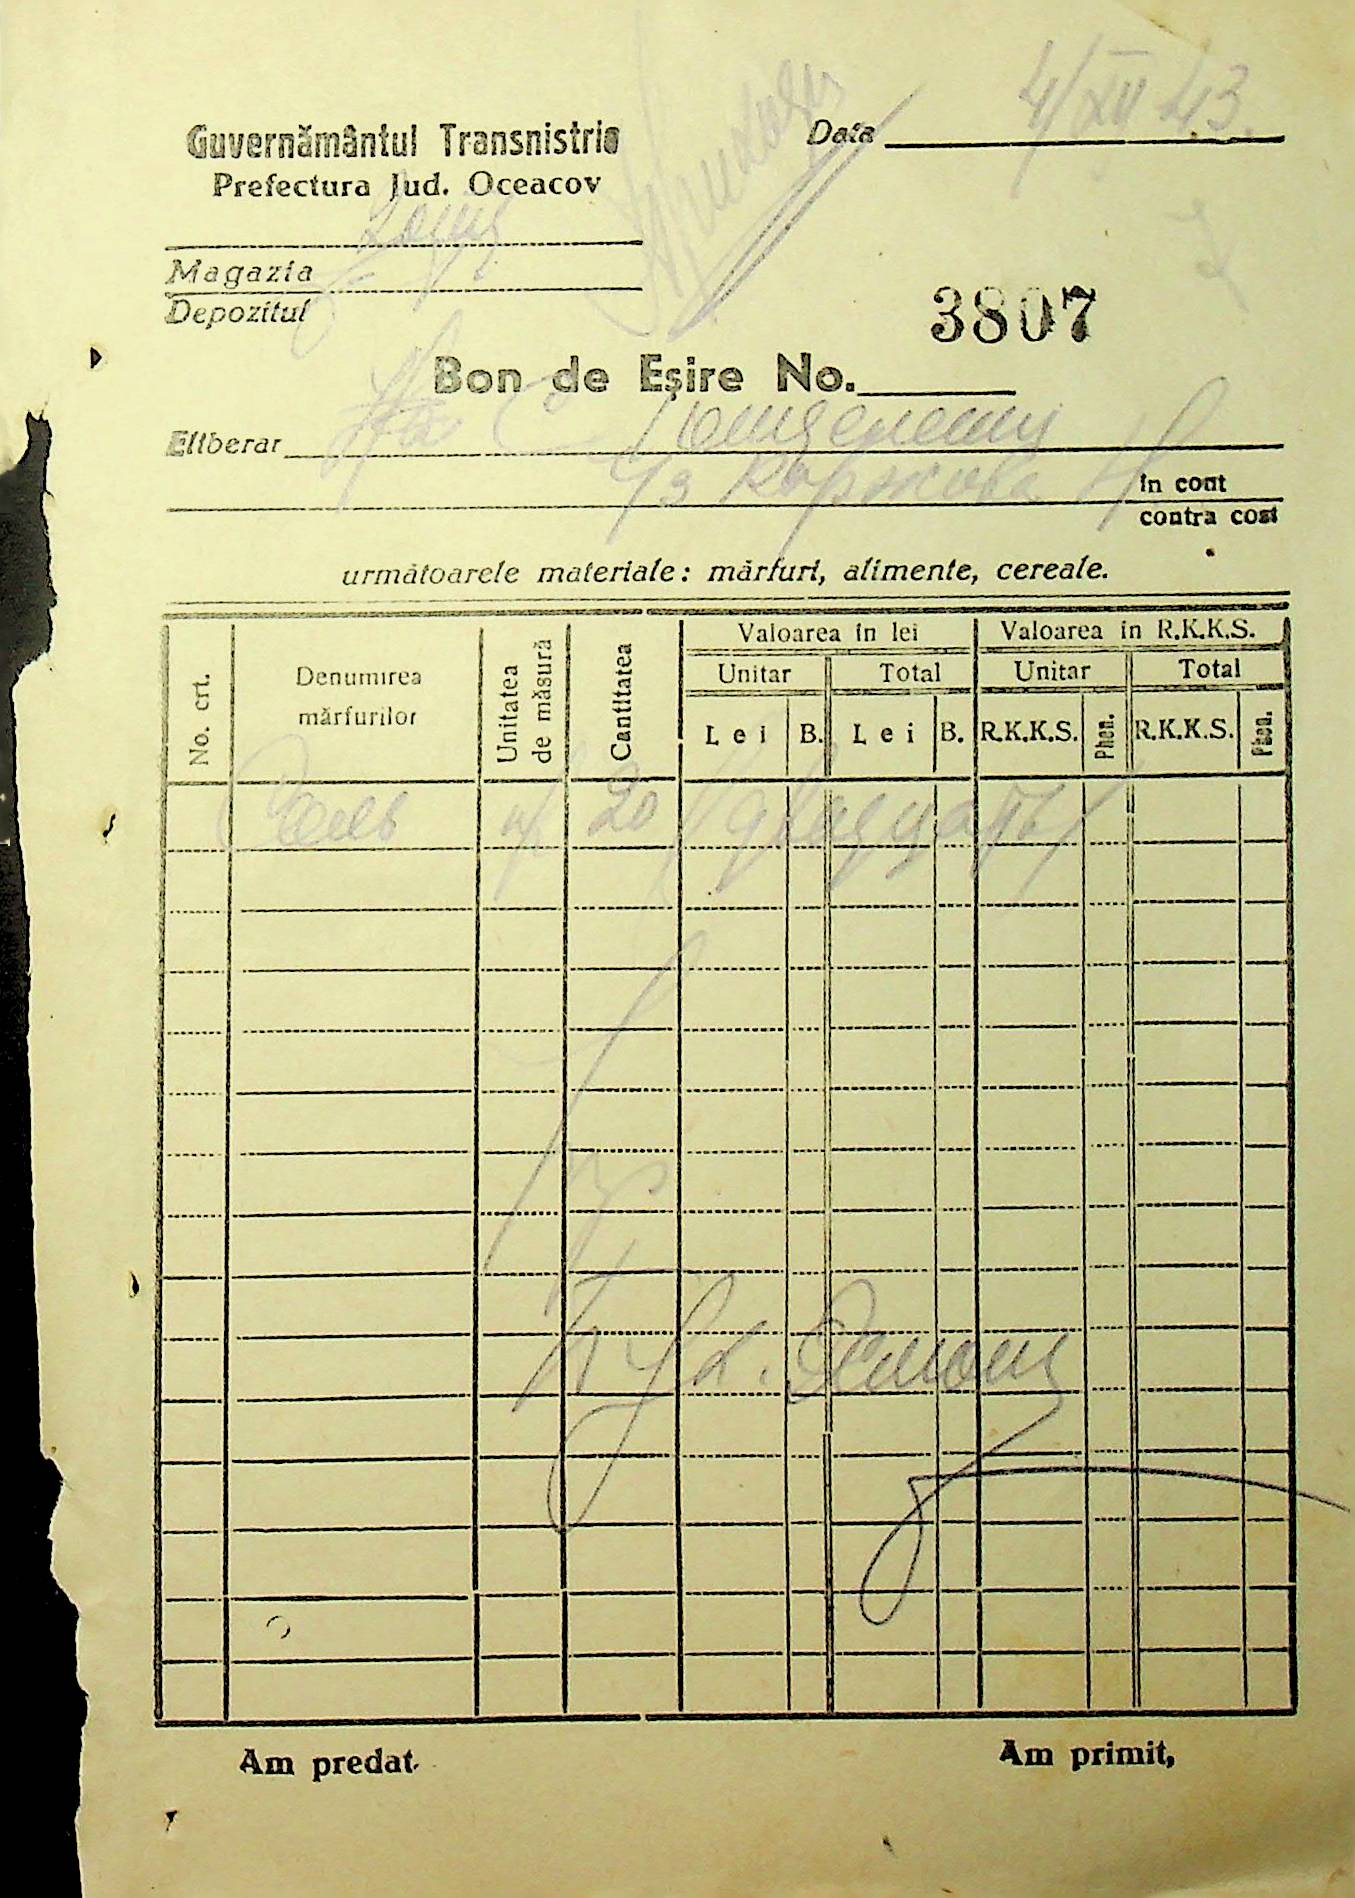 Guvernământul Transnistria
Prefectura Jud. Oceacov
Data 4/XII 43
Magazia
Depozitul
3807
Bon de Eşire No.
Eliberar
in cont
contra cost
următoarele materiale: mărfuri, alimente, cereale.
No. crt. Denumirea mărfurilor Unitatea de măsură Cantitatea Valoarea in lei Valoarea in R.K.K.S.
Unitar Total Unitar Total
Lei B. Lei B. R.K.K.S. Phen. R.K.K.S. Phen.
Соль кг 20 /двадцать/
Am predat.
Am primit,